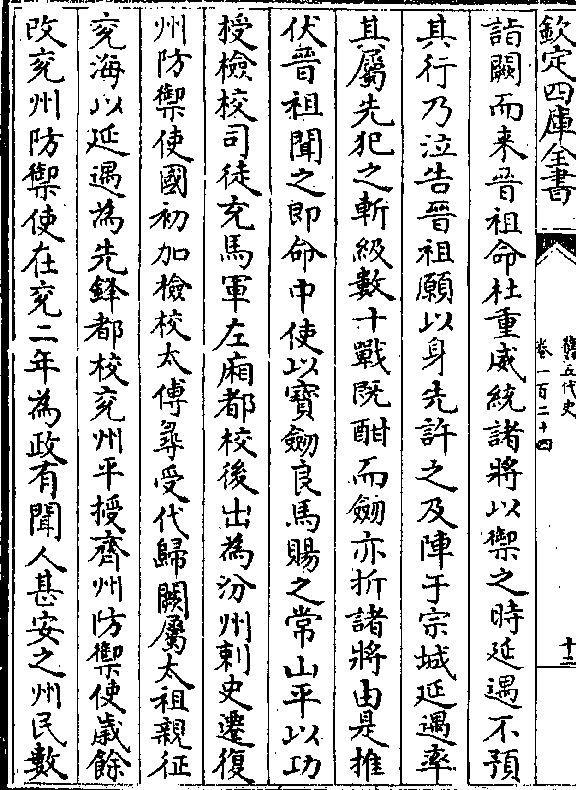 欽定四庫全書
舊五代史
卷一百二十四
十三
詣闕而来晉祖命杜重威統諸將以禦之時延遇不預
其行乃泣告晉祖願以身先許之及陣于宗城延遇率
其屬先犯之斬級數十戰既酣而劒亦折諸將由是推
伏晉祖聞之即命中使以寶劒良馬賜之常山平以功
授檢校司徒充馬軍左廂都校後出為汾州刺史遷復
州防禦使國初加檢校太傅尋受代歸闕屬太祖親征
兗海以延遇為先鋒都校兗州平授齊州防禦使歲餘
改兗州防禦使在兗二年為政有聞人甚安之州民數